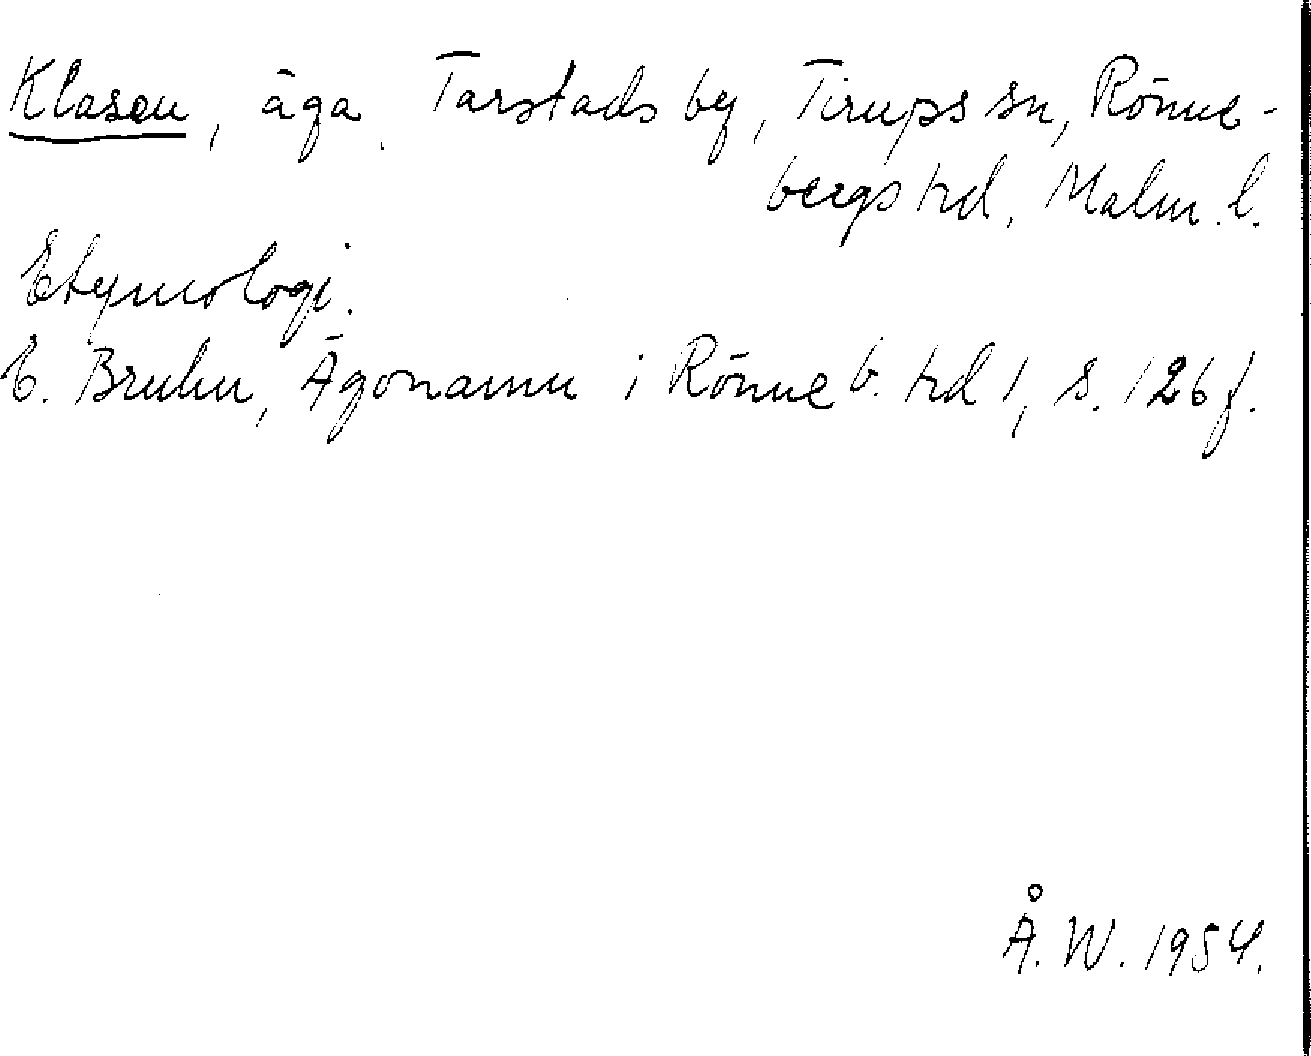 Klasen, äga, Tarstads by, Tirups sn, Rönne-
bergs hd, Malm. l.
Etymologi.
E. Bruhn, Ägonamn i Rönneb. hd 1, s. 126 f.
Å. W. 1954.